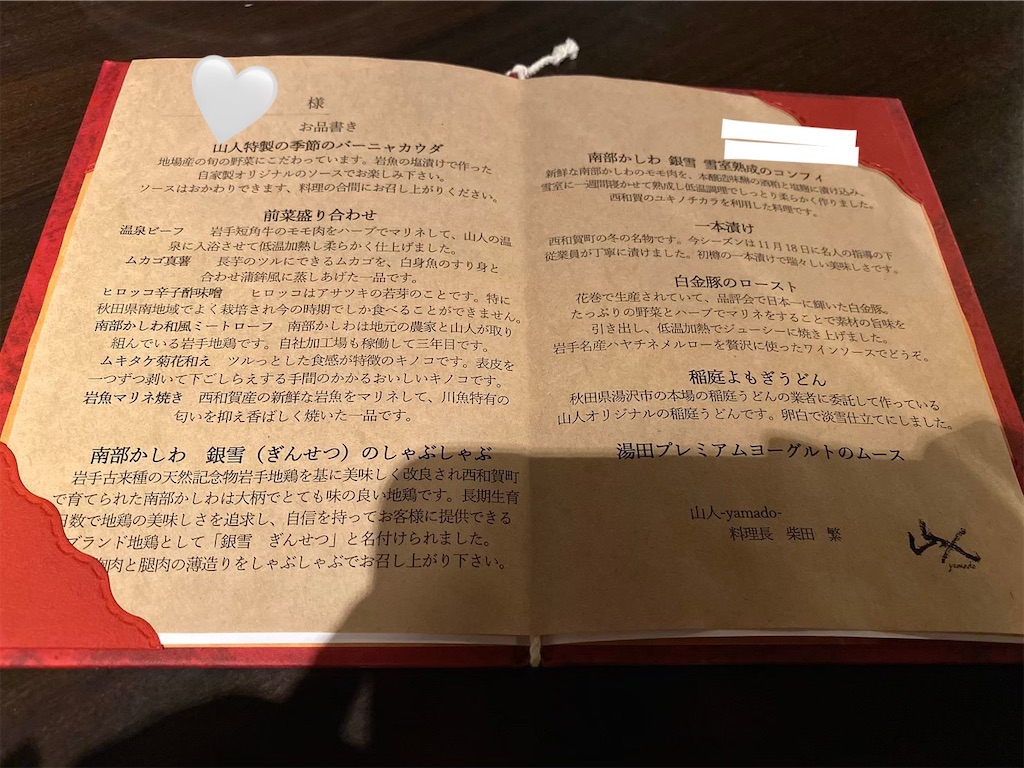 様
お品書き
山人特製の季節のバーニャカウダ
地場産の旬の野菜にこだわっています。岩魚の塩漬けで作った
自家製オリジナルのソースでお楽しみ下さい。
ソースはおかわりできます、料理の合間にお召し上がりください。
前菜盛り合わせ
温泉ビーフ 岩手短角牛のモモ肉をハーブでマリネして、山人の温
泉に入浴させて低温加熱し柔らかく仕上げました。
ムカゴ真薯 長芋のツルにできるムカゴを、白身魚のすり身と
合わせ蒲鉾風に蒸しあげた一品です。
ヒロッコ辛子酢味噌 ヒロッコはアサツキの若芽のことです。特に
秋田県南地域でよく栽培され今の時期でしか食べることができません。
南部かしわ和風ミートローフ 南部かしわは地元の農家と山人が取り
組んでいる岩手地鶏です。自社加工場も稼働して三年目です。
ムキタケ菊花和え ツルっとした食感が特徴のキノコです。表皮を
一つずつ剥いて下ごしらえする手間のかかるおいしいキノコです。
岩魚マリネ焼き 西和賀産の新鮮な岩魚をマリネして、川魚特有の
匂いを抑え香ばしく焼いた一品です。
南部かしわ 銀雪（ぎんせつ）のしゃぶしゃぶ
岩手古来種の天然記念物岩手地鶏を基に美味しく改良され西和賀町
で育てられた南部かしわは大柄でとても味の良い地鶏です。長期生育
日数で地鶏の美味しさを追求し、自信を持ってお客様に提供できる
ブランド地鶏として「銀雪 ぎんせつ」と名付けられました。
胸肉と腿肉の薄造りをしゃぶしゃぶでお召し上がり下さい。
南部かしわ 銀雪 雪室熟成のコンフィ
新鮮な南部かしわのモモ肉を、本醸造味醂の酒粕と塩麹に漬け込み、
雪室に一週間寝かせて熟成し低温調理でしっとり柔らかく作りました。
西和賀のユキノチカラを利用した料理です。
一本漬け
西和賀町の冬の名物です。今シーズンは11月18日に名人の指導の下
従業員が丁寧に漬けました。初樽の一本漬けで瑞々しい美味しさです。
白金豚のロースト
花巻で生産されていて、品評会で日本一に輝いた白金豚。
たっぷりの野菜とハーブでマリネをすることで素材の旨味を
引き出し、低温加熱でジューシーに焼き上げました。
岩手名産ハヤチネメルローを贅沢に使ったワインソースでどうぞ。
稲庭よもぎうどん
秋田県湯沢市の本場の稲庭うどんの業者に委託して作っている
山人オリジナルの稲庭うどんです。卵白で淡雪仕立てにしました。
湯田プレミアムヨーグルトのムース
山人-yamado-
料理長 柴田 繁
山人
yamado